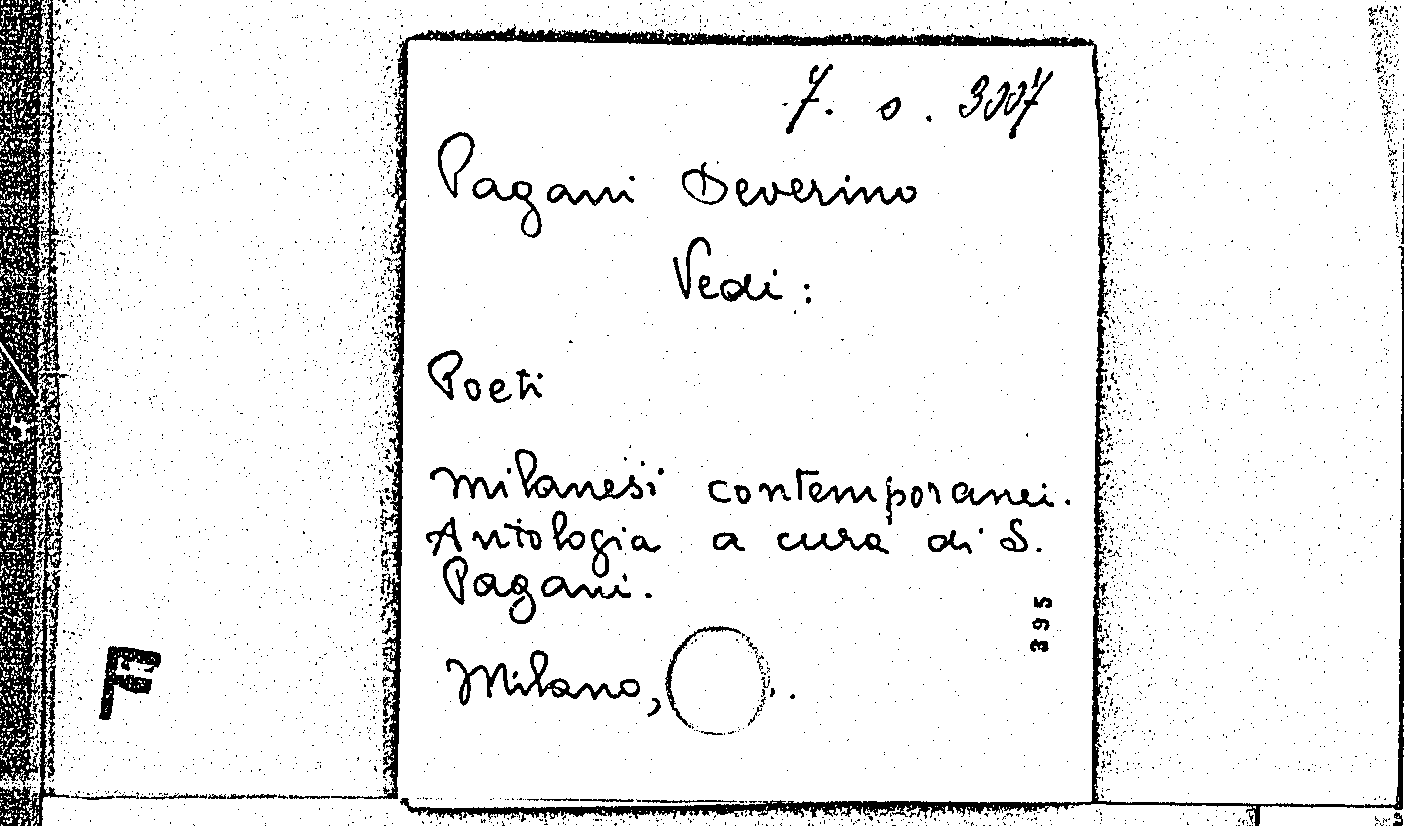 7. o. 3007
Pagani Severino
Vedi:
Poeti
milanesi contemporanei.
Antologia a cura di S.
Pagani.
395
Milano, .
F